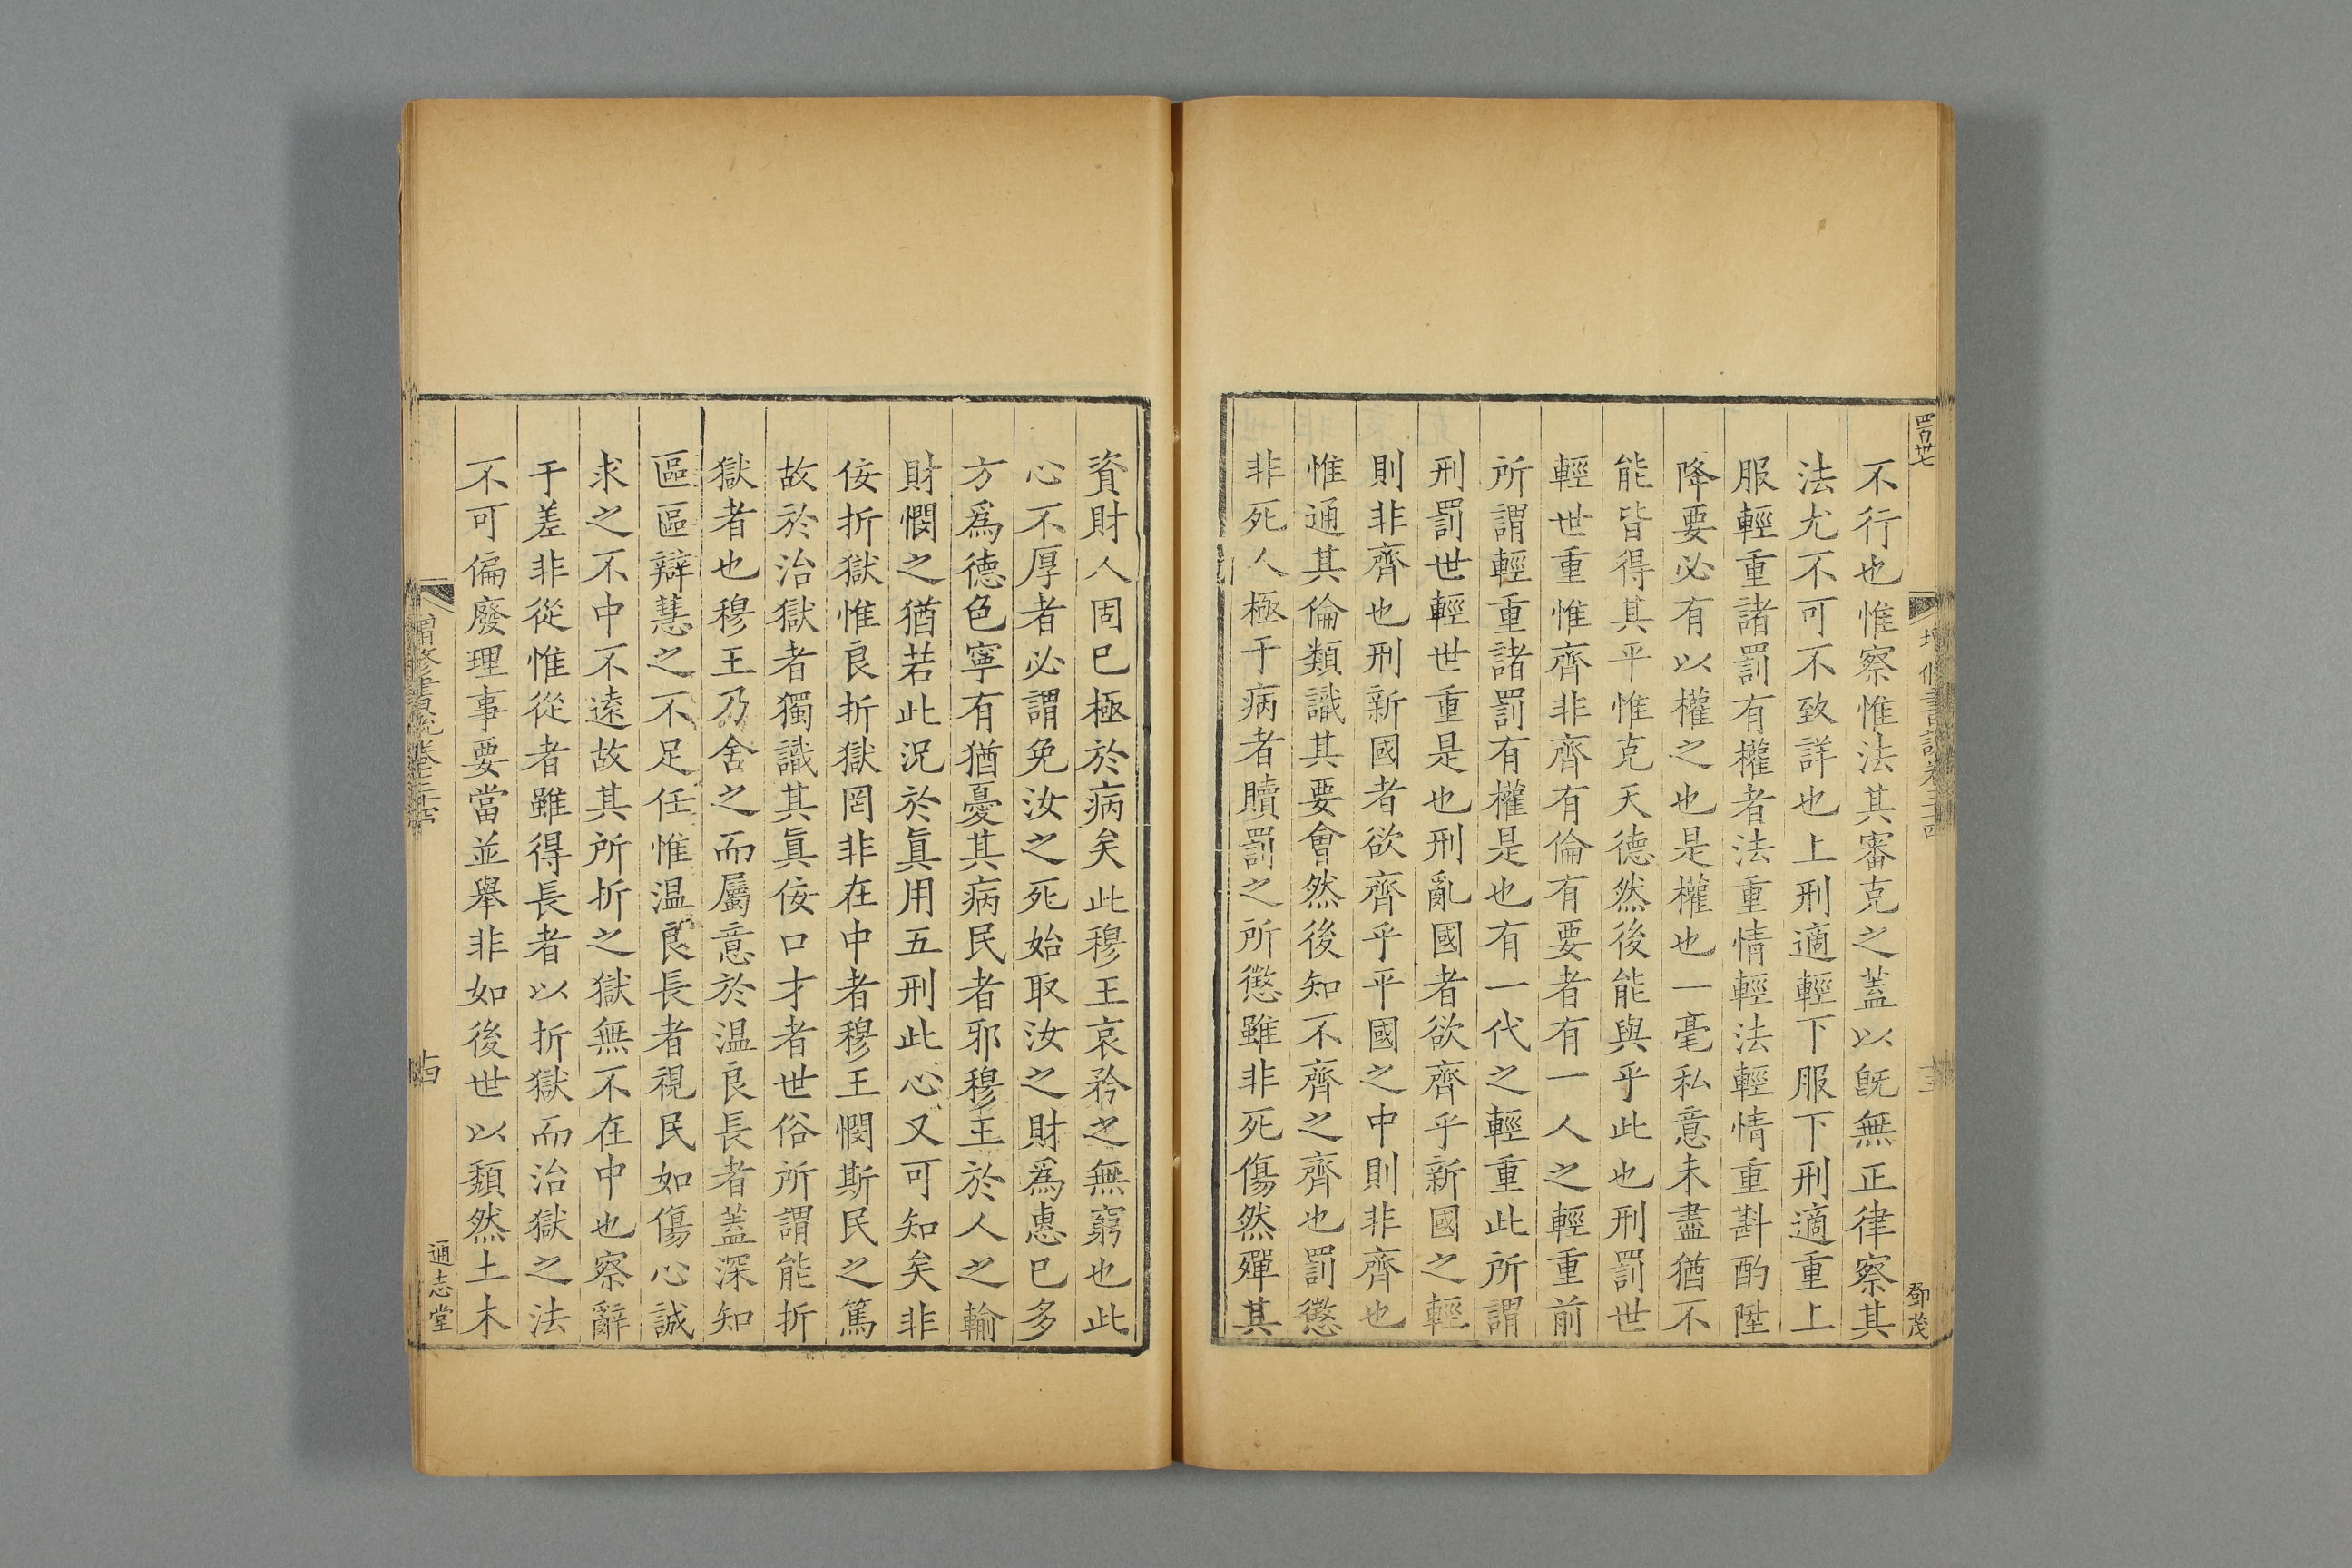 不行也惟察惟法其審克之蓋以旣無正律察其
法尤不可不致詳也上刑適輕下服下刑適重上
服輕重諸罰有權者法重情輕法輕情重斟酌陞
降要必有以權之也是權也一毫私意未盡猶不
能皆得其平惟克天德然後能與乎此也刑罰世
輕世重惟齊非齊有倫有要者有一人之輕重前
所謂輕重諸罰有權是也有一代之輕重此所謂
刑罰世輕世重是也刑亂國者欲齊乎新國之輕
則非齊也刑新國者欲齊乎平國之中則非齊也
惟通其倫類識其要會然後知不齊之齊也罰懲
非死人極于病者贖罰之所懲雖非死傷然殫其
鄧茂
資財人固已極於病矣此穆王哀矜之無窮也此
心不厚者必謂免汝之死始取汝之財爲惠已多
方爲德色寧有猶憂其病民者邪穆王於人之輸
財憫之猶若此況於眞用五刑此心又可知矣非
佞折獄惟良折獄罔非在中者穆王憫斯民之篤
故於治獄者獨識其眞佞口才者世俗所謂能折
獄者也穆王乃舍之而屬意於温良長者蓋深知
區區辯慧之不足任惟温良長者視民如傷心誠
求之不中不遠故其所折之獄無不在中也察辭
于差非從惟從者雖得長者以折獄而治獄之法
不可偏廢理事要當並舉非如後世以頹然土木
增修書說卷三十四
通志堂